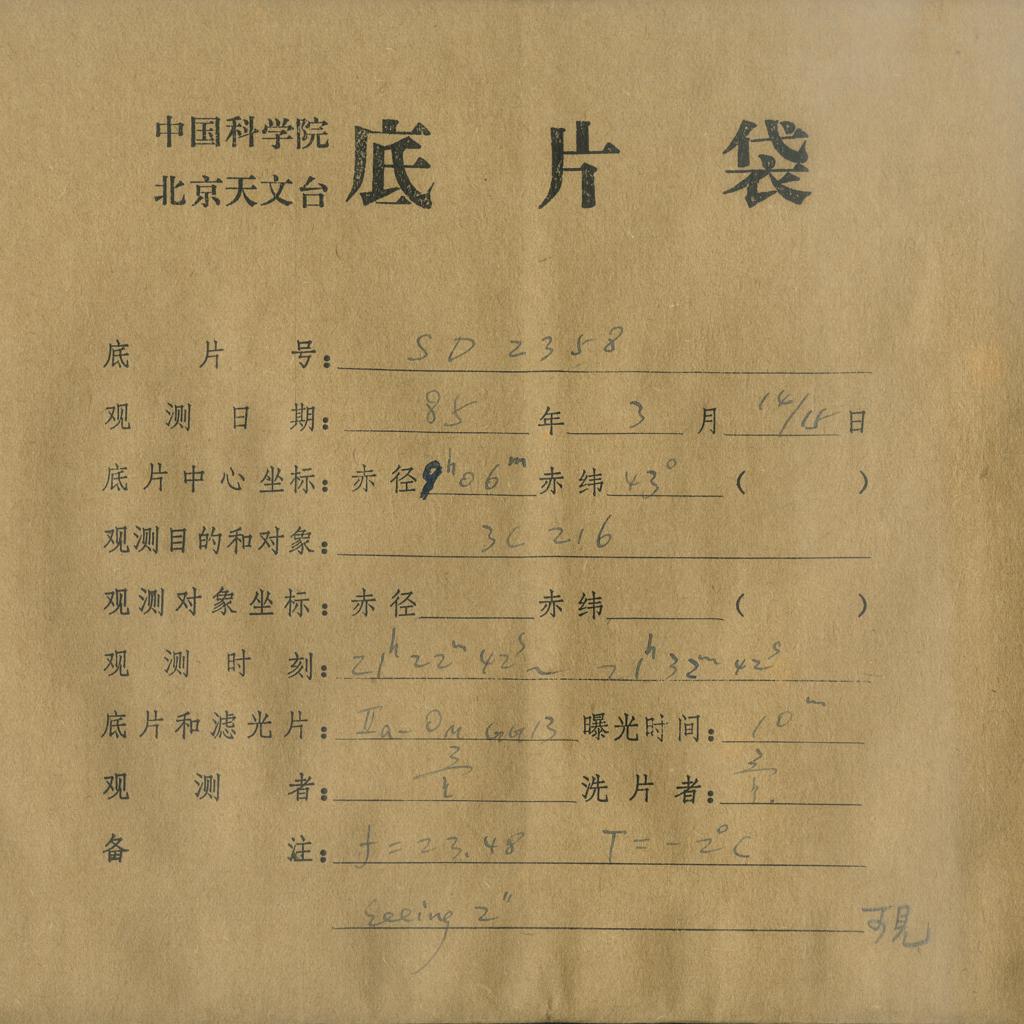 中国科学院
北京天文台
底片袋
底片号：SD 2358
观测日期：85年3月14/15日
底片中心坐标：赤径9ʰ06ᵐ赤纬43°（ ）
观测目的和对象：3C 216
观测对象坐标：赤径 赤纬 （ ）
观测时刻：21ʰ22ᵐ42ˢ～21ʰ32ᵐ42ˢ
底片和滤光片：IIa-O GG13 曝光时间：10ᵐ
观测者： 洗片者：
备注：f=23.48 T=-2°C
Seeing 2"